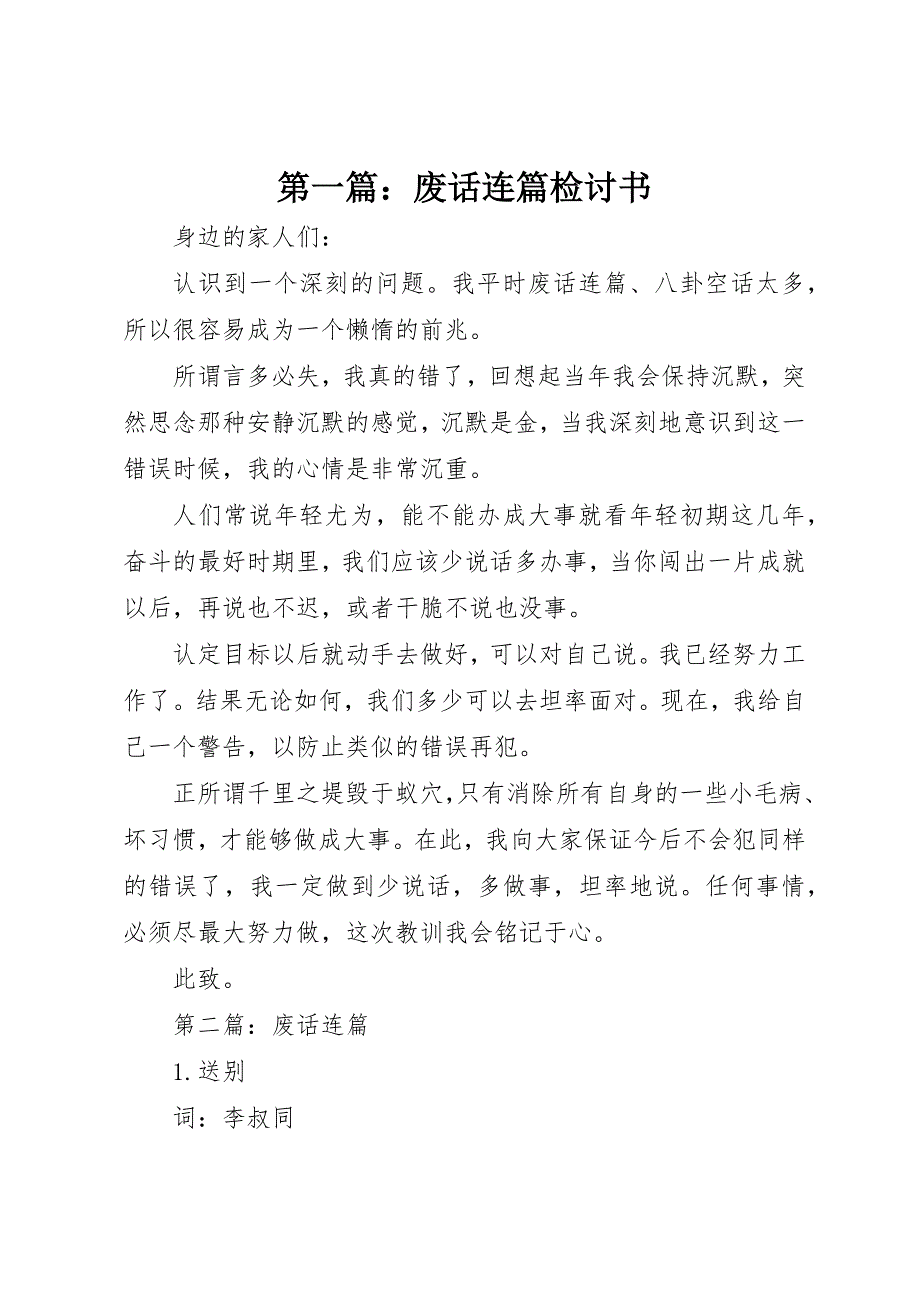 第一篇：废话连篇检讨书
身边的家人们：
认识到一个深刻的问题。我平时废话连篇、八卦空话太多，
所以很容易成为一个懒惰的前兆。
所谓言多必失，我真的错了，回想起当年我会保持沉默，突
然思念那种安静沉默的感觉，沉默是金，当我深刻地意识到这一
错误时候，我的心情是非常沉重。
人们常说年轻尤为，能不能办成大事就看年轻初期这几年，
奋斗的最好时期里，我们应该少说话多办事，当你闯出一片成就
以后，再说也不迟，或者干脆不说也没事。
认定目标以后就动手去做好，可以对自己说。我已经努力工
作了。结果无论如何，我们多少可以去坦率面对。现在，我给自
己一个警告，以防止类似的错误再犯。
正所谓千里之堤毁于蚁穴，只有消除所有自身的一些小毛病、
坏习惯，才能够做成大事。在此，我向大家保证今后不会犯同样
的错误了，我一定做到少说话，多做事，坦率地说。任何事情，
必须尽最大努力做，这次教训我会铭记于心。
此致。
第二篇：废话连篇
1.送别
词：李叔同